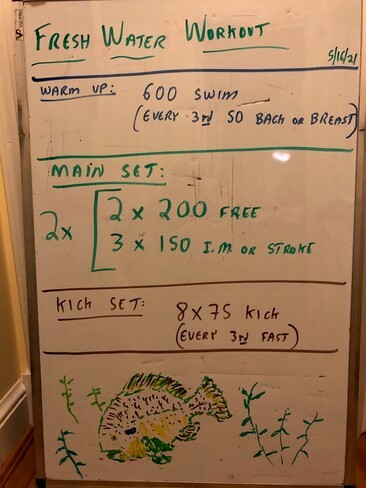 FRESH WATER WORKOUT
5/16/21
WARM UP: 600 SWIM
(EVERY 3RD 50 BACK OR BREAST)
MAIN SET:
2x [ 2 x 200 FREE
3 x 150 I.M. OR STROKE
KICK SET: 8 x 75 KICK
(EVERY 3RD FAST)